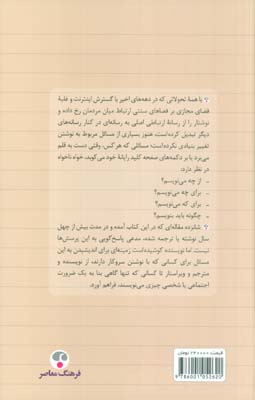 با همهٔ تحولاتی که در دهه‌های اخیر با گسترش اینترنت و غلبهٔ
فضای مجازی بر فضاهای سنتی ارتباط میان مردمان رخ داده و
نوشتار را از رسانهٔ ارتباطی اصلی به رسانه‌ای در کنار رسانه‌های
دیگر تبدیل کرده‌است، هنوز بسیاری از مسائل مربوط به نوشتن
تغییر بنیادی نکرده‌است: مسائلی که هر کس، وقتی دست به قلم
می‌برد یا بر دکمه‌های صفحه کلید رایانهٔ خود می‌کوبد، خواه‌ناخواه
در نظر دارد:
- از چه می‌نویسم؟
- برای چه می‌نویسم؟
- برای که می‌نویسم؟
- چگونه باید بنویسم؟
شانزده مقاله‌ای که در این کتاب آمده و در مدت بیش از چهل
سال نوشته یا ترجمه شده، مدعی پاسخ‌گویی به این پرسش‌ها
نیست اما نویسنده کوشیده‌است زمینه‌ای برای اندیشیدن به این
مسائل برای کسانی که با نوشتن سروکار دارند، از نویسنده و
مترجم و ویراستار تا کسانی که تنها گاهی بنا به یک ضرورت
اجتماعی یا شخصی چیزی می‌نویسند، فراهم آورد.
فرهنگ معاصر
تومان
9 786001 052620